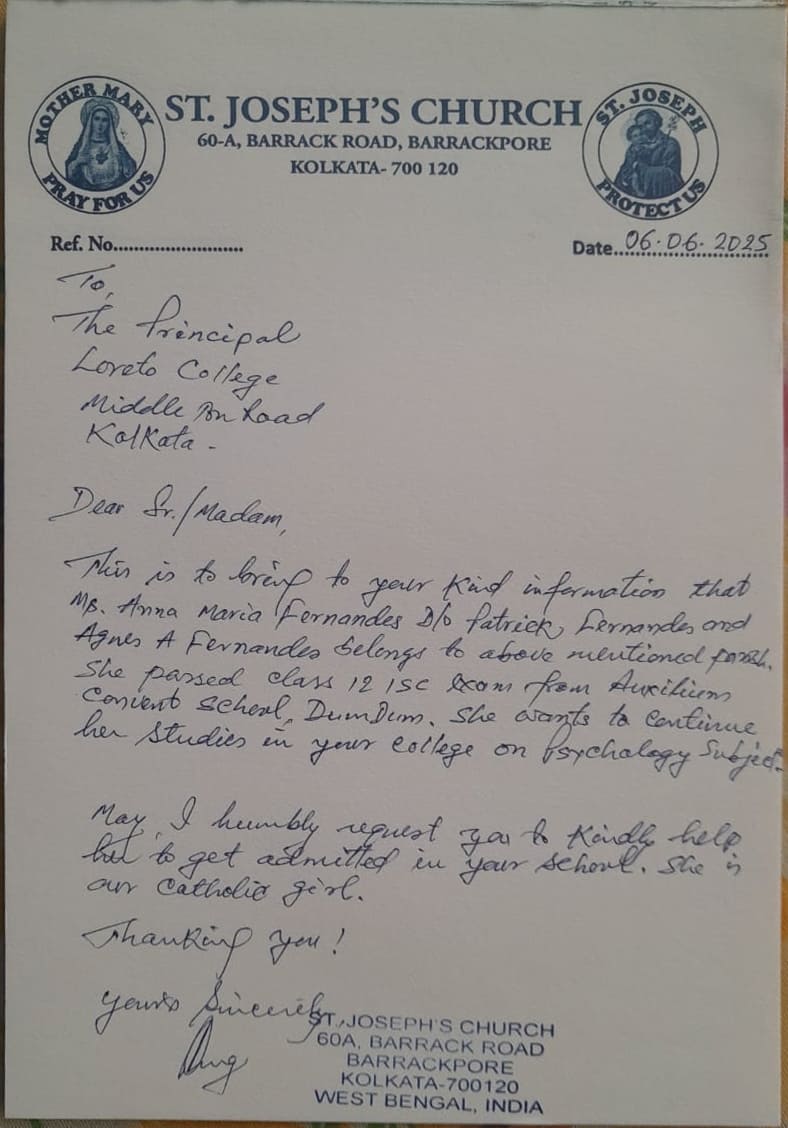 MOTHER MARY
PRAY FOR US
ST. JOSEPH'S CHURCH
60-A, BARRACK ROAD, BARRACKPORE
KOLKATA- 700 120
ST. JOSEPH
PROTECT US
Ref. No........................
Date..06.06.2025
To,
The Principal
Loreto College
Middle Road
Kolkata -
Dear Sr./Madam,
This is to bring to your kind information that
Ms. Anna Maria Fernandes D/o Patrick, Fernandes and
Agnes A Fernandes belongs to above mentioned parish.
She passed class 12 ISC exam from Auxilium
Convent School, DumDum. She wants to continue
her studies in your college on Psychology Subject.
May, I humbly request you to kindly help
her to get admitted in your school. She is
our Catholic girl.
Thanking you!
Yours Sincerely,
ST. JOSEPH'S CHURCH
60A, BARRACK ROAD
BARRACKPORE
KOLKATA-700120
WEST BENGAL, INDIA